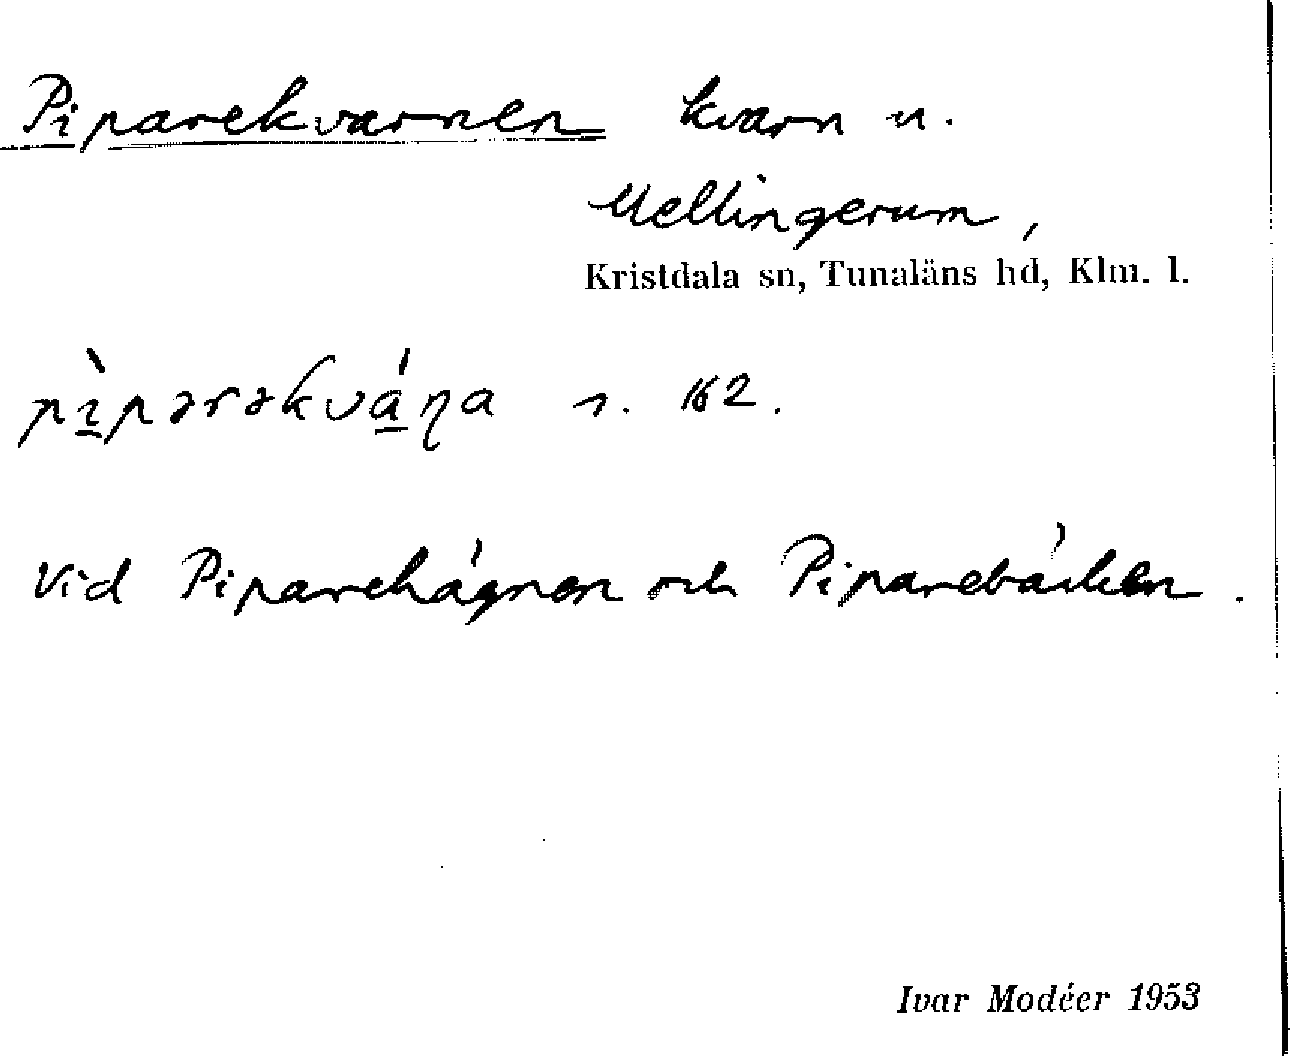 Piparekvarnen kvarn u.
Mellingerum,
Kristdala sn, Tunaläns hd, Klm. l.
pìpərəkváɳa s. 162.
Vid Piparehágnen och Piparebäcken.
Ivar Modéer 1953